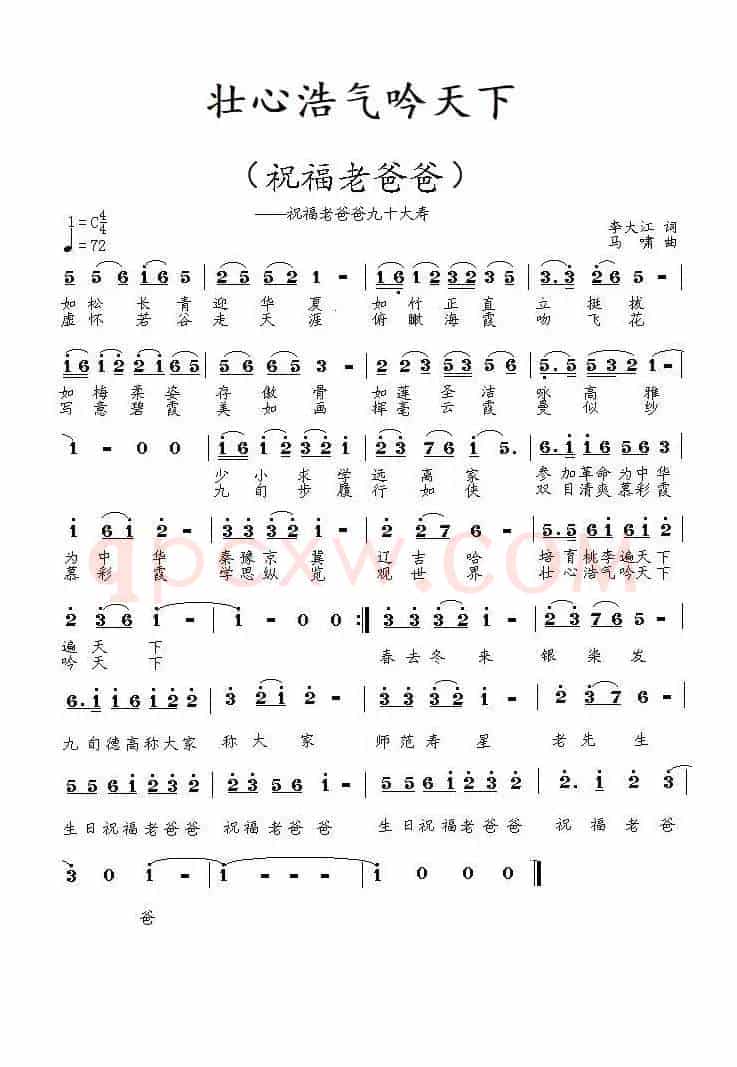 壮心浩气吟天下
（祝福老爸爸）
——祝福老爸爸九十大寿
1=C 4/4
♩=72
李大江 词
马啸 曲
5 5 6 1 6 5 | 2 5 5 2 - | 1 6 1 2 3 2 3 5 | 3. 3 2 6 5 -
如松长青迎华夏 如竹正直立挺拔
虚怀若谷走天涯 俯瞰海霞吻飞花
1 6 1 2 2 1 6 5 | 5 6 5 3 - | 2 2 3 5 5 2 | 5. 5 5 3 5 2 -
如梅柔姿存傲骨 如莲圣洁咏高雅
写意碧霞美如画 挥毫云霞曼似纱
1 - 0 0 | 1 6 1 2 3 2 1 | 2 3 7 6 1 5. | 6. 1 1 6 1 2 2
少小求学远离家 参加革命为中华
九旬步履行如侠 双目清爽慕彩霞
1 6 1 2 - | 3 3 3 2 1 - | 2 2 7 6 - | 5. 5 6 1 6 1 2 2
为中华 秦豫京冀 辽吉哈 培育桃李遍天下
慕彩霞 学思纵览 观世界 壮心浩气吟天下
2 3 6 1 - | 1 - 0 0 :| 3 3 3 2 1 - | 2 3 7 6 5 -
遍天下 春去冬来 银染发
吟天下
6. 1 1 6 1 2 2 | 3 2 1 2 - | 3 3 5 2 - | 2 3 7 6 -
九旬德高称大家 称大家 师范寿星 老先生
5 5 6 1 2 3 2 | 2 2 1 2 3 2 | 5 5 6 1 2 3 2 | 2. 1 2 3
生日祝福老爸爸 祝福老爸爸 生日祝福老爸爸 祝福老爸
3 0 1 - | 1 - - - | 1 0 0 0 ‖
爸
qpcxw.com